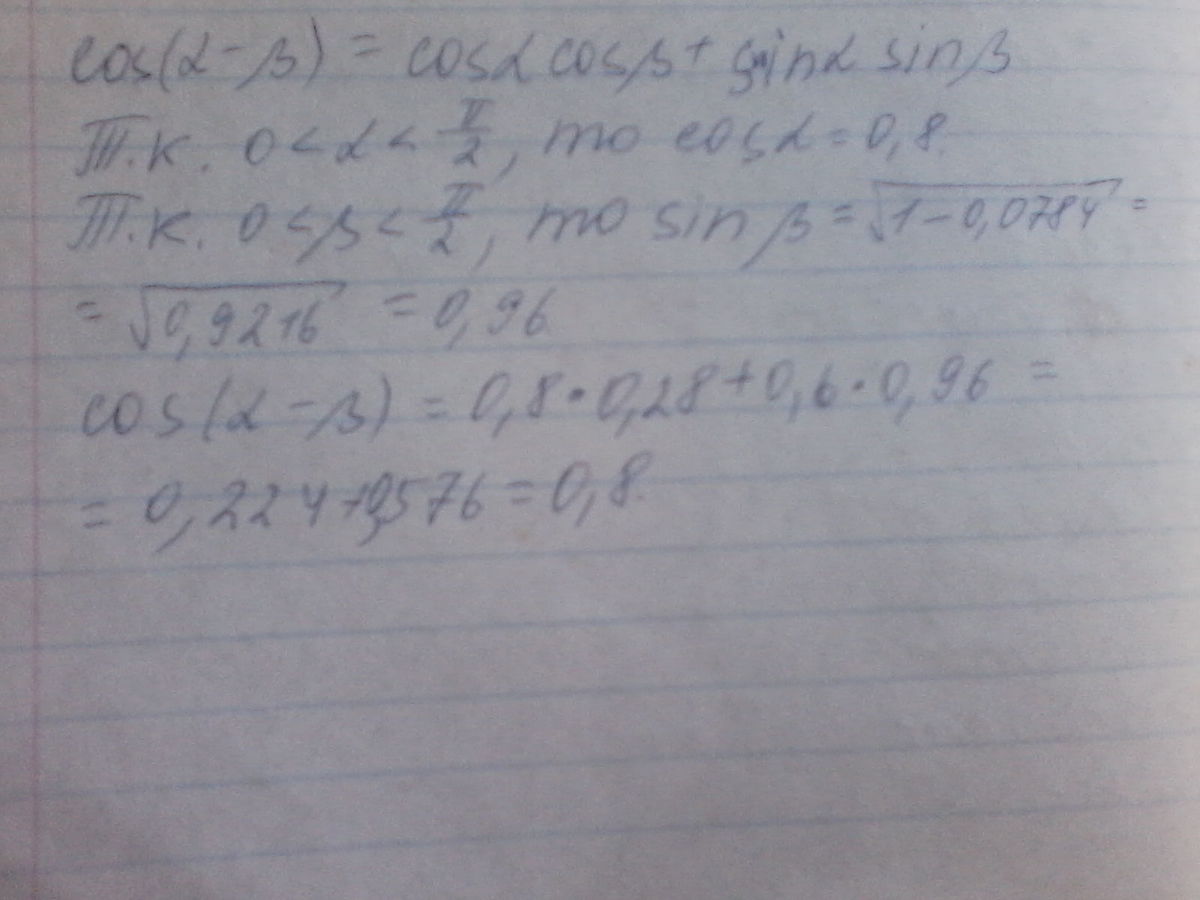 cos(α-β) = cosα cosβ + sinα sinβ
Т.к. 0<α<π/2, то cosα=0,8.
Т.к. 0<β<π/2, то sinβ=√1-0,0784 =
= √0,9216 = 0,96
cos(α-β) = 0,8·0,28+0,6·0,96 =
= 0,224+0,576=0,8.